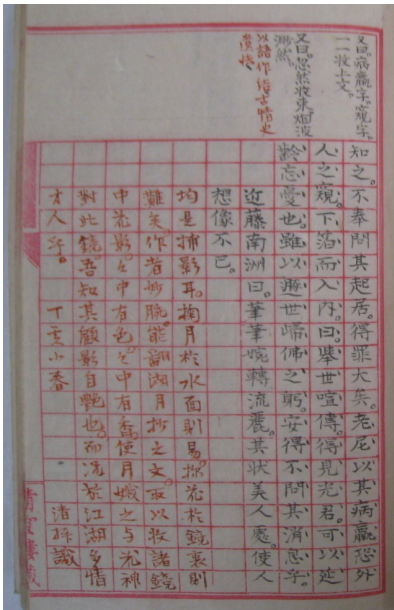 又曰。病羸字。窺字。
一一收上文。
又曰。忽然收束。烟波
渺然。
以語作結古情史
遺悵
知之。不奉問其起居。得罪大矣。老尼以其病羸恐外
人之窺。下箔而入內。曰。舉世喧傳。得見光君。可以延
齡忘憂也。雖以遯世歸佛之躬。安得不問其消息乎。
近藤南洲曰。筆筆婉轉流麗。其狀美人處。使人
想像不已。
均是捕影耳。掬月於水面則易。探花於鏡裏則
難矣。作者妙腕。能翻湖月抄之文。取以收諸鏡
中花影。々中有色。々中有香。使月娥之與花神
對此鏡。吾知其顧影自艷也。而況於江湖多情
才人乎。
丁丑小春